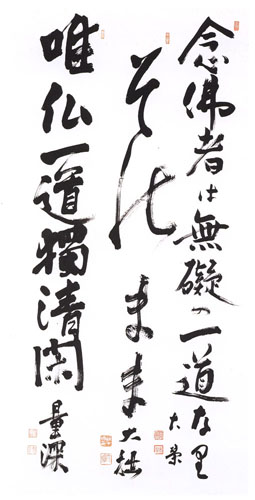 念佛者は無礙の一道なり 大栄
そのまま 大拙
唯仏一道獨清閑 量深